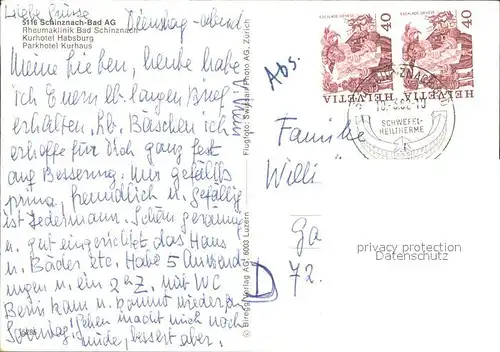 Liebe Dienstag-abend
5116 Schinznach-Bad AG
Rheumaklinik Bad Schinznach
Kurhotel Habsburg
Parkhotel Kurhaus
Meine Lieben, heute habe
ich Euern lb. langen Brief
erhalten, lb. ich
erhoffe für Dich ganz fest
auf Besserung. Mir gefällts
prima, freundlich u. gefällig
ist Jedermann. Schön geräumig
u. gut eingerichtet das Haus
u. Bäder etc. Habe 5 Anwend
ungen u. ein 2er Z. mit WC
Berni kam u. kommt wieder
Sonntag! Gehen macht mich noch
müde, bessert aber.
Flugfoto: Swissair-Photo AG, Zürich
© Biregg Verlag AG, 6003 Luzern
Abs.
ESCALADE GENÈVE
HELVETIA 40
ESCALADE GENÈVE
HELVETIA 40
SCHWEFEL-
HEILTHERME
Familie
Willi
Ga
D 72.
privacy protection
Datenschutz